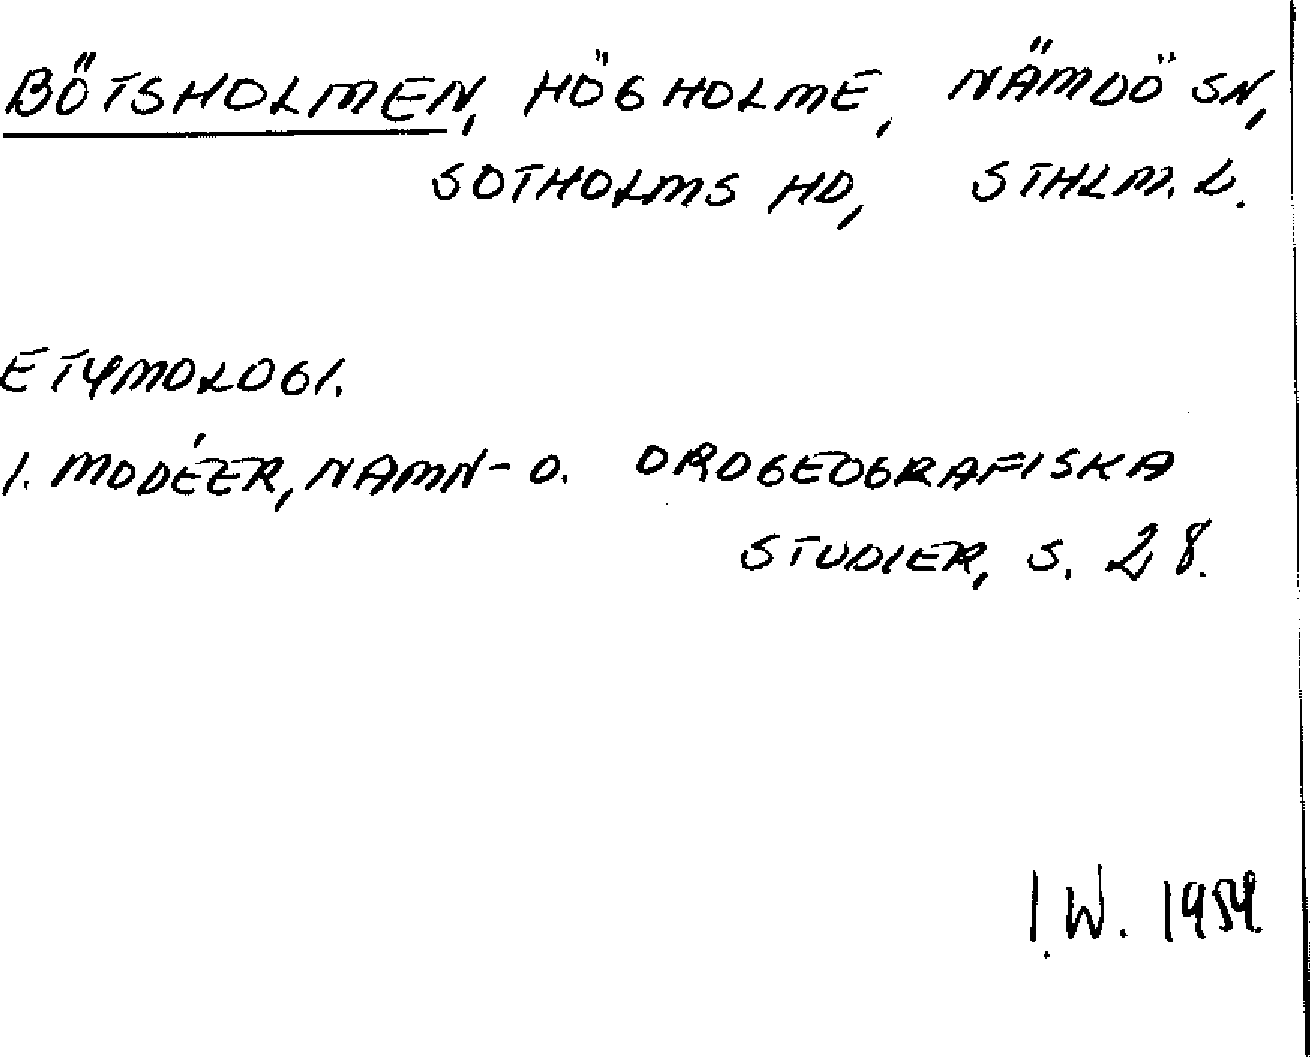 BÖTSHOLMEN, HÖGHOLME, NÄMDÖ SN,
SOTHOLMS HD, STHLM. L.
ETYMOLOGI.
I. MODÉER, NAMN- O. ORDGEOGRAFISKA
STUDIER, S. 28.
I.W. 1959